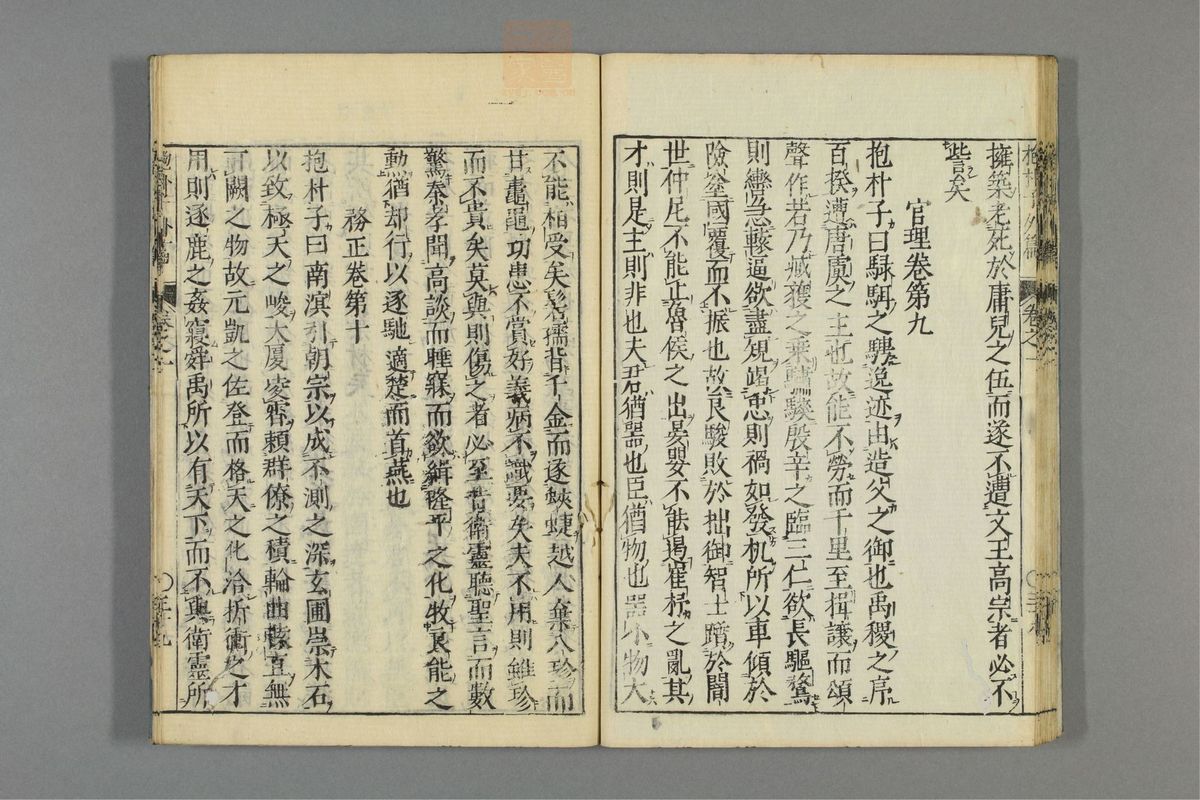 擁築老死於庸兒之伍而遂不遭文王高宗者必不
訾矣
官理卷第九
抱朴子曰騄駬之騁逸迹由造父之御也禹稷之序
百揆遭唐虞之主也故能不勞而千里至揖讓而頌
聲作若乃臧獲之乘驌驦殷辛之臨三仁欲長驅騖
則轡急轅逼欲盡規竭忠則禍如發机所以車傾於
險塗國覆而不振也故良駿敗於拙御智士躓於闇
世仲尼不能止魯侯之出晏嬰不能遏崔杼之亂其
才則是主則非也夫君猶器也臣猶物也器小物大
不能相受矣髫孺背千金而逐蛺蜨越人棄八珍而
甘鼃黽功患不賞好義病不識要矣夫不用則雖珍
而不貴矣莫與則傷之者必至昔衛靈聽聖言而數
驚秦孝聞高談而睡寐而欲緝隆平之化牧良能之
勳猶却行以逐馳適楚而首燕也
務正卷第十
抱朴子曰南溟引朝宗以成不測之深玄圃崇木石
以致極天之峻大厦凌霄賴群僚之積輪曲轅直無
可闕之物故元凱之佐登而格天之化洽折衝之才
用則逐鹿之姦寢舜禹所以有天下而不與衛靈所
抱朴子外篇
卷之一